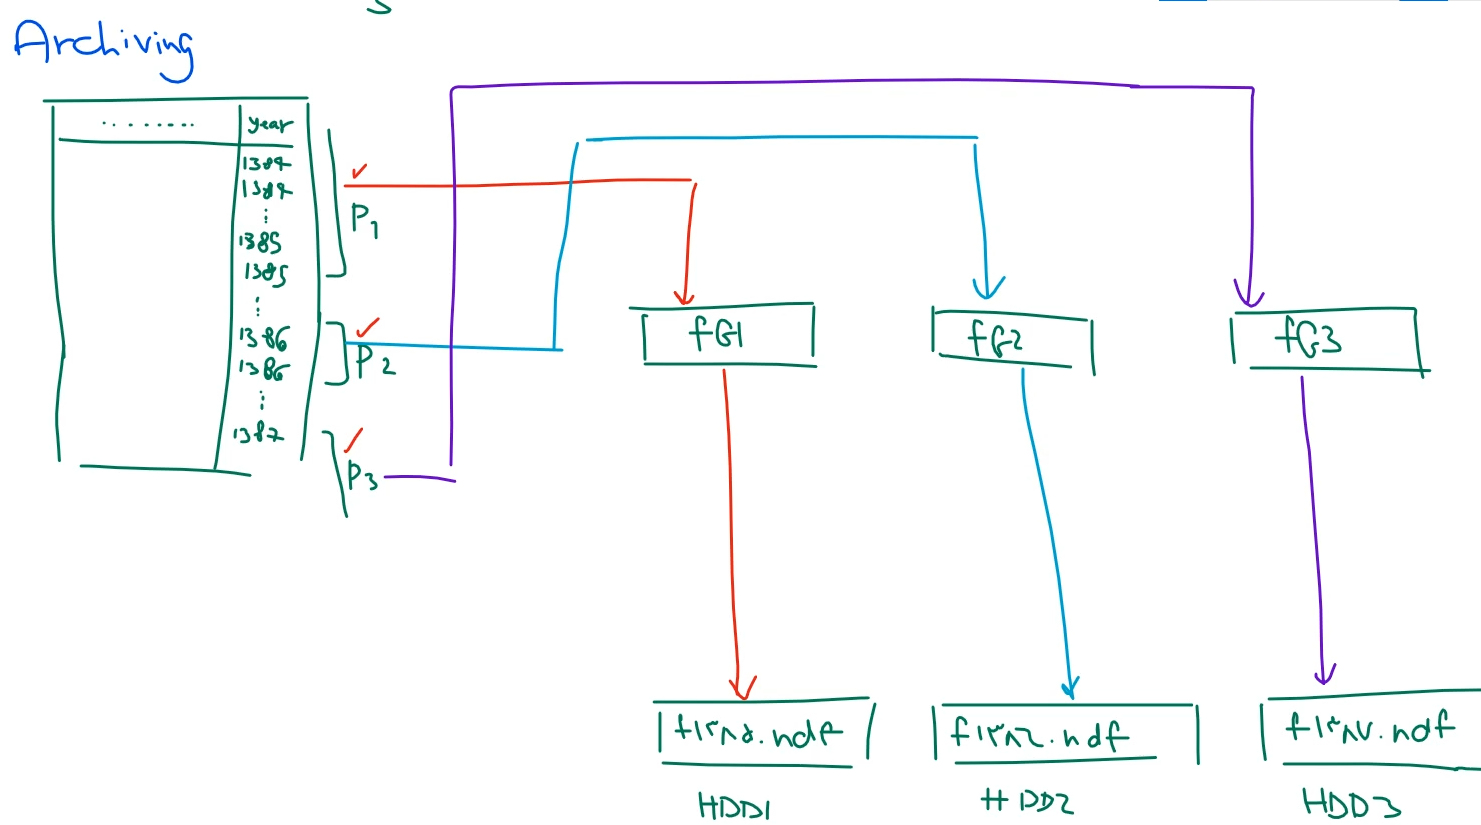 Archiving
........ year
1384
1384
⋮
1385
1385
⋮
1386
1386
⋮
1387
P1
P2
P3
fG1 fG2 fG3
f۱۳۸۵.ndf f۱۳۸۶.ndf f۱۳۸۷.ndf
HDD1 HDD2 HDD3